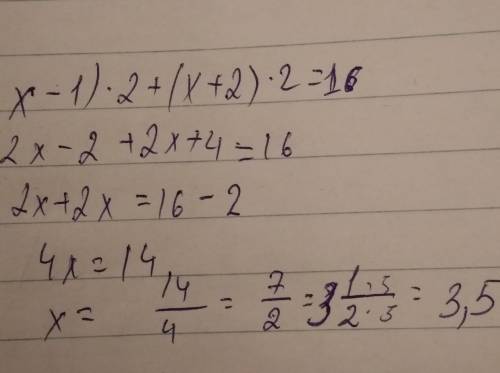 x-1)·2+(x+2)·2=16
2x-2+2x+4=16
2x+2x=16-2
4x=14
x= 14/4 = 7/2 = 3 1·5/2·5 = 3,5